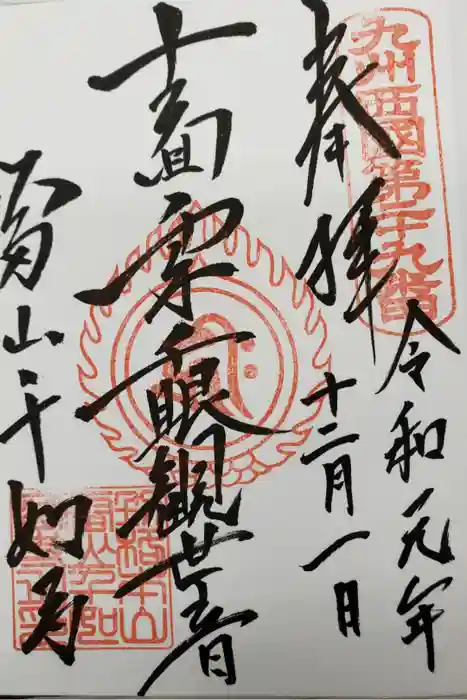 九州西國第二十九番
奉拝
令和元年
十二月一日
十一面千手千眼観世音
雷山千如寺